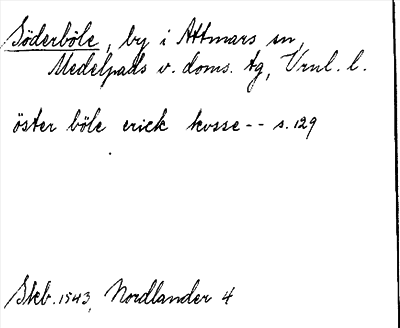 Söderböle, by i Attmars sn,
Medelpads v. doms. tg, Vrnl. l.
öster böle erick kosse -- s. 129
Skb. 1543, Nordlander 4